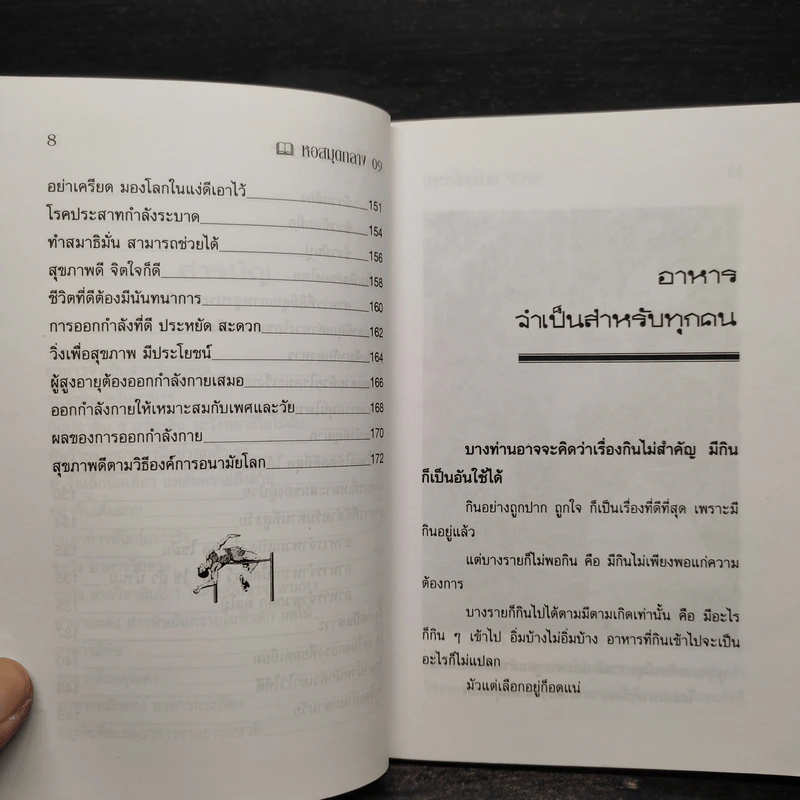 8
หอสมุดกลาง 09
อย่าเครียด มองโลกในแง่ดีเอาไว้ 151
โรคประสาทกำลังระบาด 154
ทำสมาธิมั่น สามารถช่วยได้ 156
สุขภาพดี จิตใจก็ดี 158
ชีวิตที่ดีต้องมีนันทนาการ 160
การออกกำลังที่ดี ประหยัด สะดวก 162
วิ่งเพื่อสุขภาพ มีประโยชน์ 164
ผู้สูงอายุต้องออกกำลังกายเสมอ 166
ออกกำลังกายให้เหมาะสมกับเพศและวัย 168
ผลของการออกกำลังกาย 170
สุขภาพดีตามวิธีองค์การอนามัยโลก 172
อาหาร
จำเป็นสำหรับทุกคน
บางท่านอาจจะคิดว่าเรื่องกินไม่สำคัญ มีกิน
ก็เป็นอันใช้ได้
กินอย่างถูกปาก ถูกใจ ก็เป็นเรื่องที่ดีที่สุด เพราะมี
กินอยู่แล้ว
แต่บางรายก็ไม่พอกิน คือ มีกินไม่เพียงพอแก่ความ
ต้องการ
บางรายก็กินไปได้ตามมีตามเกิดเท่านั้น คือ มีอะไร
ก็กิน ๆ เข้าไป อิ่มบ้างไม่อิ่มบ้าง อาหารที่กินเข้าไปจะเป็น
อะไรก็ไม่แปลก
มัวแต่เลือกอยู่ก็อดแน่